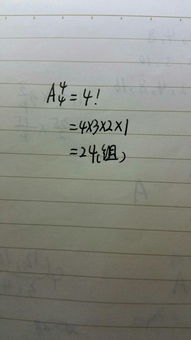 A₄⁴=4!
=4×3×2×1
=24(组)